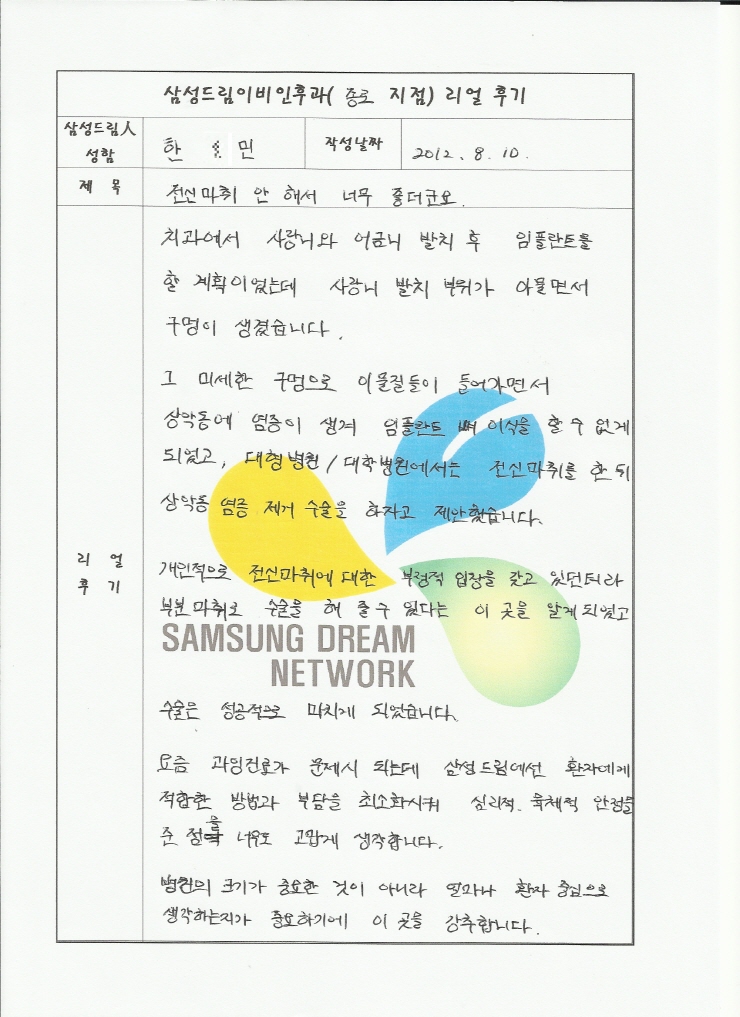 삼성드림이비인후과( 종로 지점) 리얼 후기
삼성드림人 성함
한 민
작성날짜
2012. 8. 10.
제 목
전신마취 안 해서 너무 좋더군요.
리 얼 후 기
치과에서 사랑니와 어금니 발치 후 임플란트를
할 계획이었는데 사랑니 발치 부위가 아물면서
구멍이 생겼습니다.
그 미세한 구멍으로 이물질들이 들어가면서
상악동에 염증이 생겨 임플란트 뼈 이식을 할 수 없게
되었고, 대형병원 / 대학병원에서는 전신마취를 한 뒤
상악동 염증 제거 수술을 하자고 제안했습니다.
개인적으로 전신마취에 대한 부정적 입장을 갖고 있던터라
부분 마취로 수술을 해 줄 수 있다는 이 곳을 알게 되었고
SAMSUNG DREAM
NETWORK
수술은 성공적으로 마치게 되었습니다.
요즘 과잉진료가 문제시 되는데 삼성드림에선 환자에게
적합한 방법과 부담을 최소화시켜 심리적. 육체적 안정을
준 점을 너무도 고맙게 생각합니다.
병원의 크기가 중요한 것이 아니라 얼마나 환자 중심으로
생각하는지가 중요하기에 이 곳을 강추합니다.